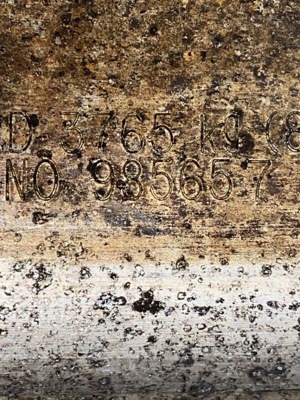 D 3765 kg (8
NO 985657